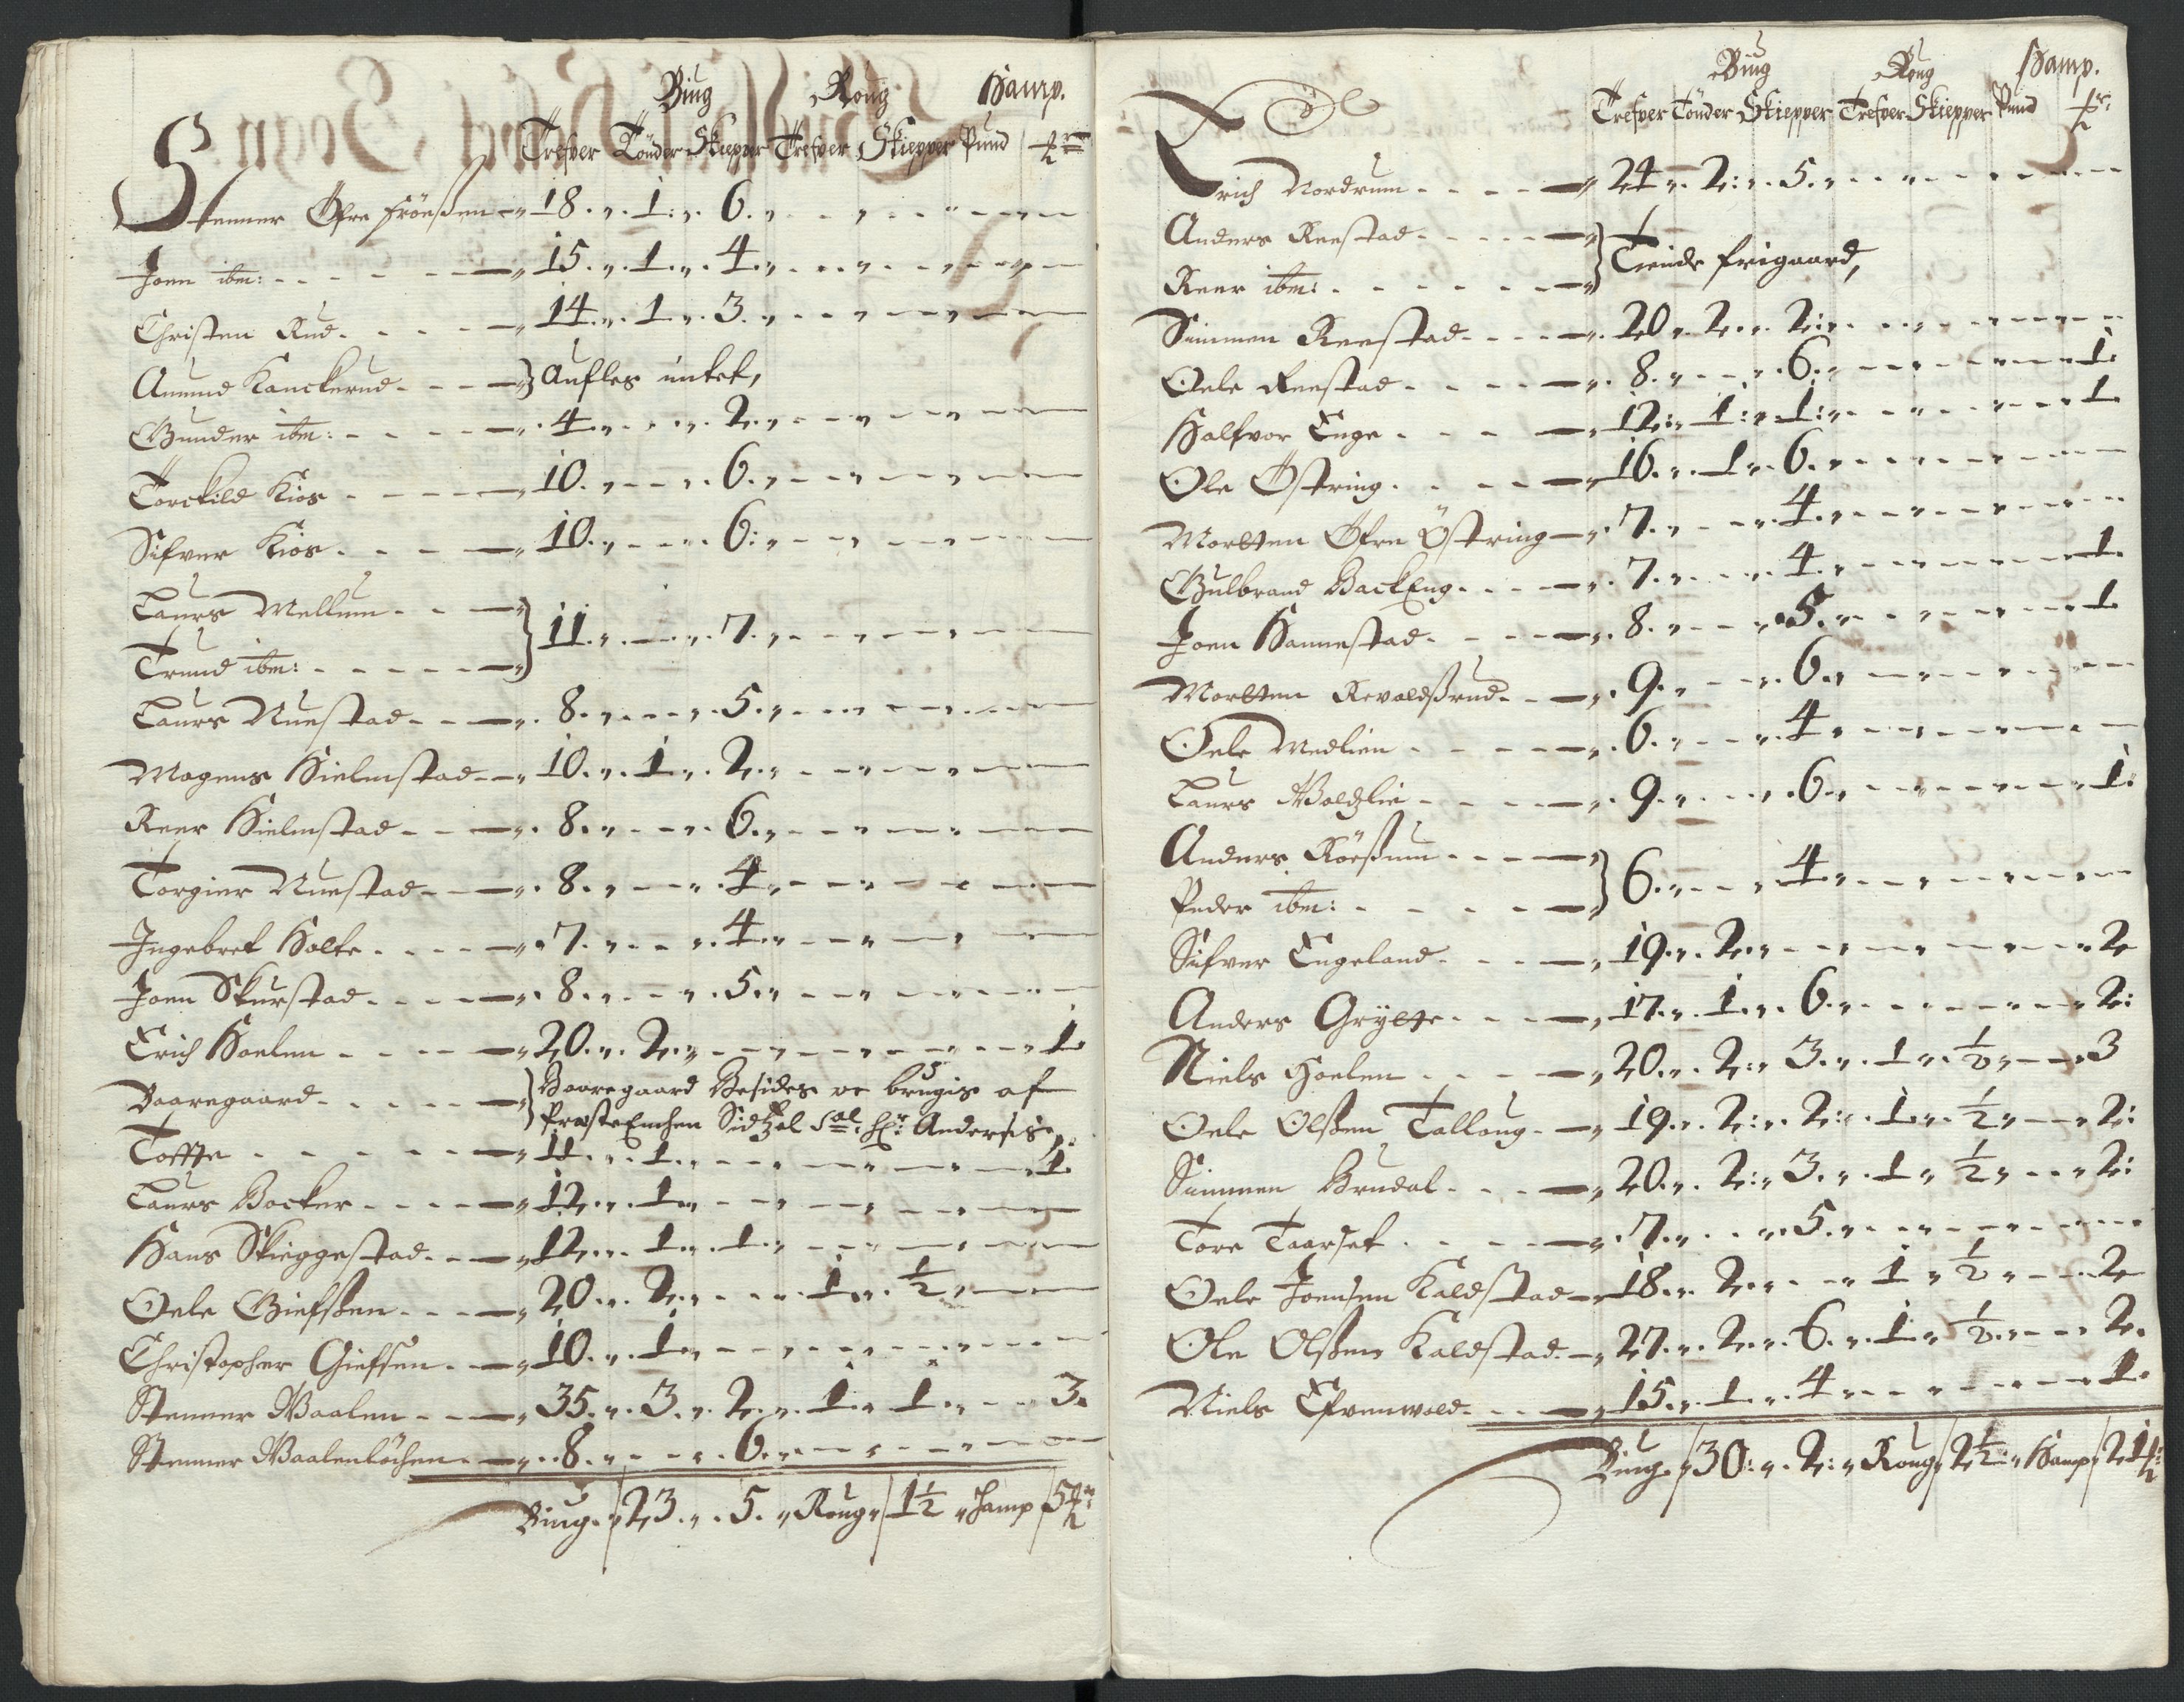 Biug Roug Hamp.
Trefver Tönder Skiepper Trefver Skiepper Pund
Stenner Öfre Fröeßen 18. 1. 6.
Joen ibm: 15. 1. 4.
Christen Rud 14. 1. 3.
Amund Kanckerud } Aufles intet,
Gunder ibm: 4. 2.
Torckild Kios 10. 6.
Sifver Kios 10. 6.
Laurs Mellum }
Trund ibm: } 11. 7.
Laurs Nuestad 8. 5.
Mogens Hielmstad 10. 1. 2.
Reer Hielmstad 8. 6.
Torgier Nuestad 8. 4.
Ingebret Holte 7. 4.
Joen Skurstad 8. 5.
Erich Hoelen 20. 2. 1.
Baaregaard } Baaregaard Besides oc brugis af
Præste Enchen Sal: Hr: Andersis,
Toffte 11. 1. 1.
Laurs Bocker 12. 1.
Hans Skieggestad 12. 1. 1.
Oele Giefsßen 20. 2. 1. ½
Christopher Giefsen 10. 1.
Stenner Waalen 35. 3. 2. 1. 1. 3.
Stenner Waalenløchen 8. 6.
Biug 23. 5. Roug 1½ Hamp 5
Biug Roug Hamp.
Trefver Tönder Skiepper Trefver Skiepper Pund
Erich Nordrum 24. 2. 5.
Anders Reestad }
Reer ibm: } Tiende frigaard,
Simmen Reestad 20. 2. 2.
Oele Reestad 8. 6. 1.
Halfvor Enge 12. 1. 1. 1.
Ole Östring 16. 1. 6.
Mortten Öfre Östring 7. 4.
Gulbrand BackEng 7. 4. 1.
Joen Hannestad 8. 5. 1.
Mortten Revoldßrud 9. 6.
Oele Medlien 6. 4.
Laurs Woldlie 9. 6. 1.
Anders Röeßum }
Peder ibm: } 6. 4.
Sifver Engeland 19. 2. 2
Anders Grytte 17. 1. 6. 2:
Niels Hoelen 20. 2: 3. 1. ½ 3
Oele Olßen Talloug 19. 2: 2: 1. ½ 2:
Simmen Brudal 20. 2: 3. 1. ½ 2:
Tore Taarset 7. 5.
Oele Joensen Kaldstad 18. 2. 1 ½ 2
Ole Olßen Kaldstad 27. 2. 6. 1. ½ 2.
Niels Efvenwold 15. 1. 4. 1.
Biug 30: 2: Roug 2½ Hamp 21